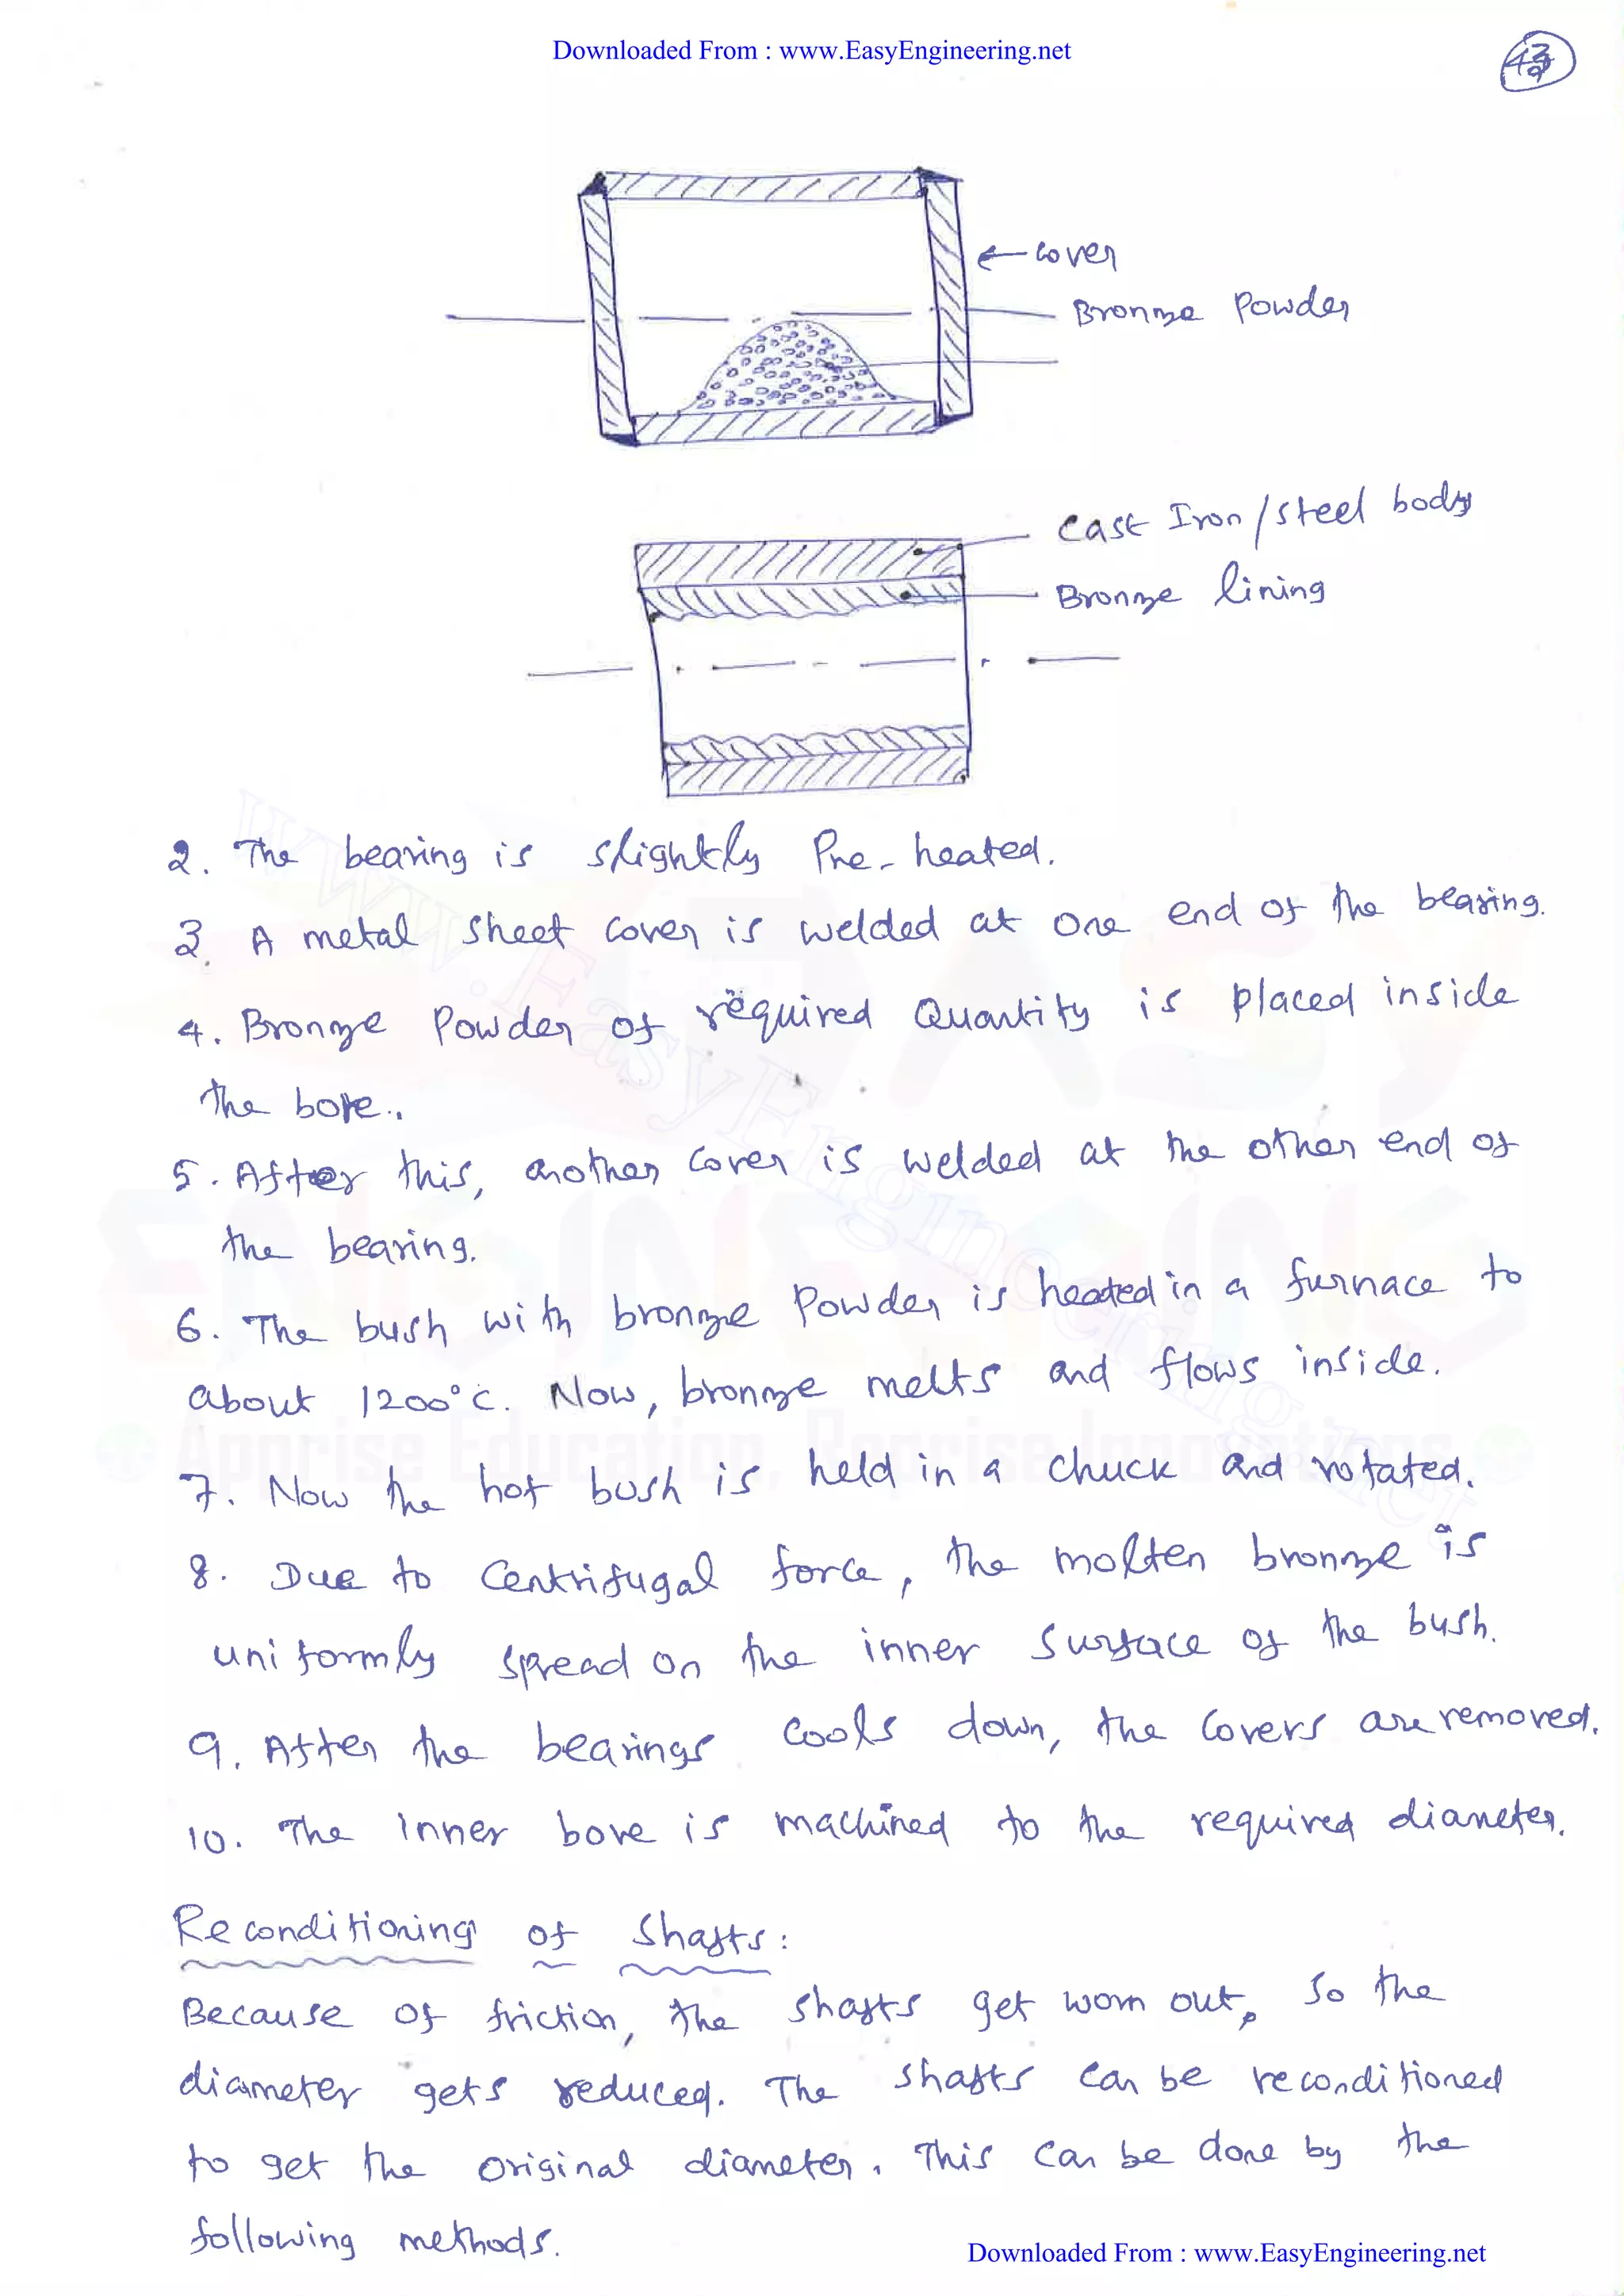 Downloaded From : www.EasyEngineering.net
← Cover
Bronze Powder
Cast Iron / steel body
Bronze lining
2. The bearing is slightly Pre-heated.
3. A metal sheet cover is welded at one end of the bearing.
4. Bronze Powder of required Quantity is placed inside
the bore.
5. After this, another cover is welded at the other end of
the bearing.
6. The bush with bronze Powder is heated in a furnace to
about 1200°C. Now, bronze melts and flows inside.
7. Now the hot bush is held in a chuck and rotated.
8. Due to Centrifugal force, the molten bronze is
uniformly spread on the inner surface of the bush.
9. After the bearings cools down, the covers are removed.
10. The inner bore is machined to the required diameter.
Reconditioning of Shafts:
Because of friction, the shafts get worn out, so the
diameter gets reduced. The shafts can be reconditioned
to get the original diameter. This can be done by the
following methods.
Downloaded From : www.EasyEngineering.net
www.EasyEngineering.net
EASY
ENGINEERING
Apprise Education, Reprise Innovations